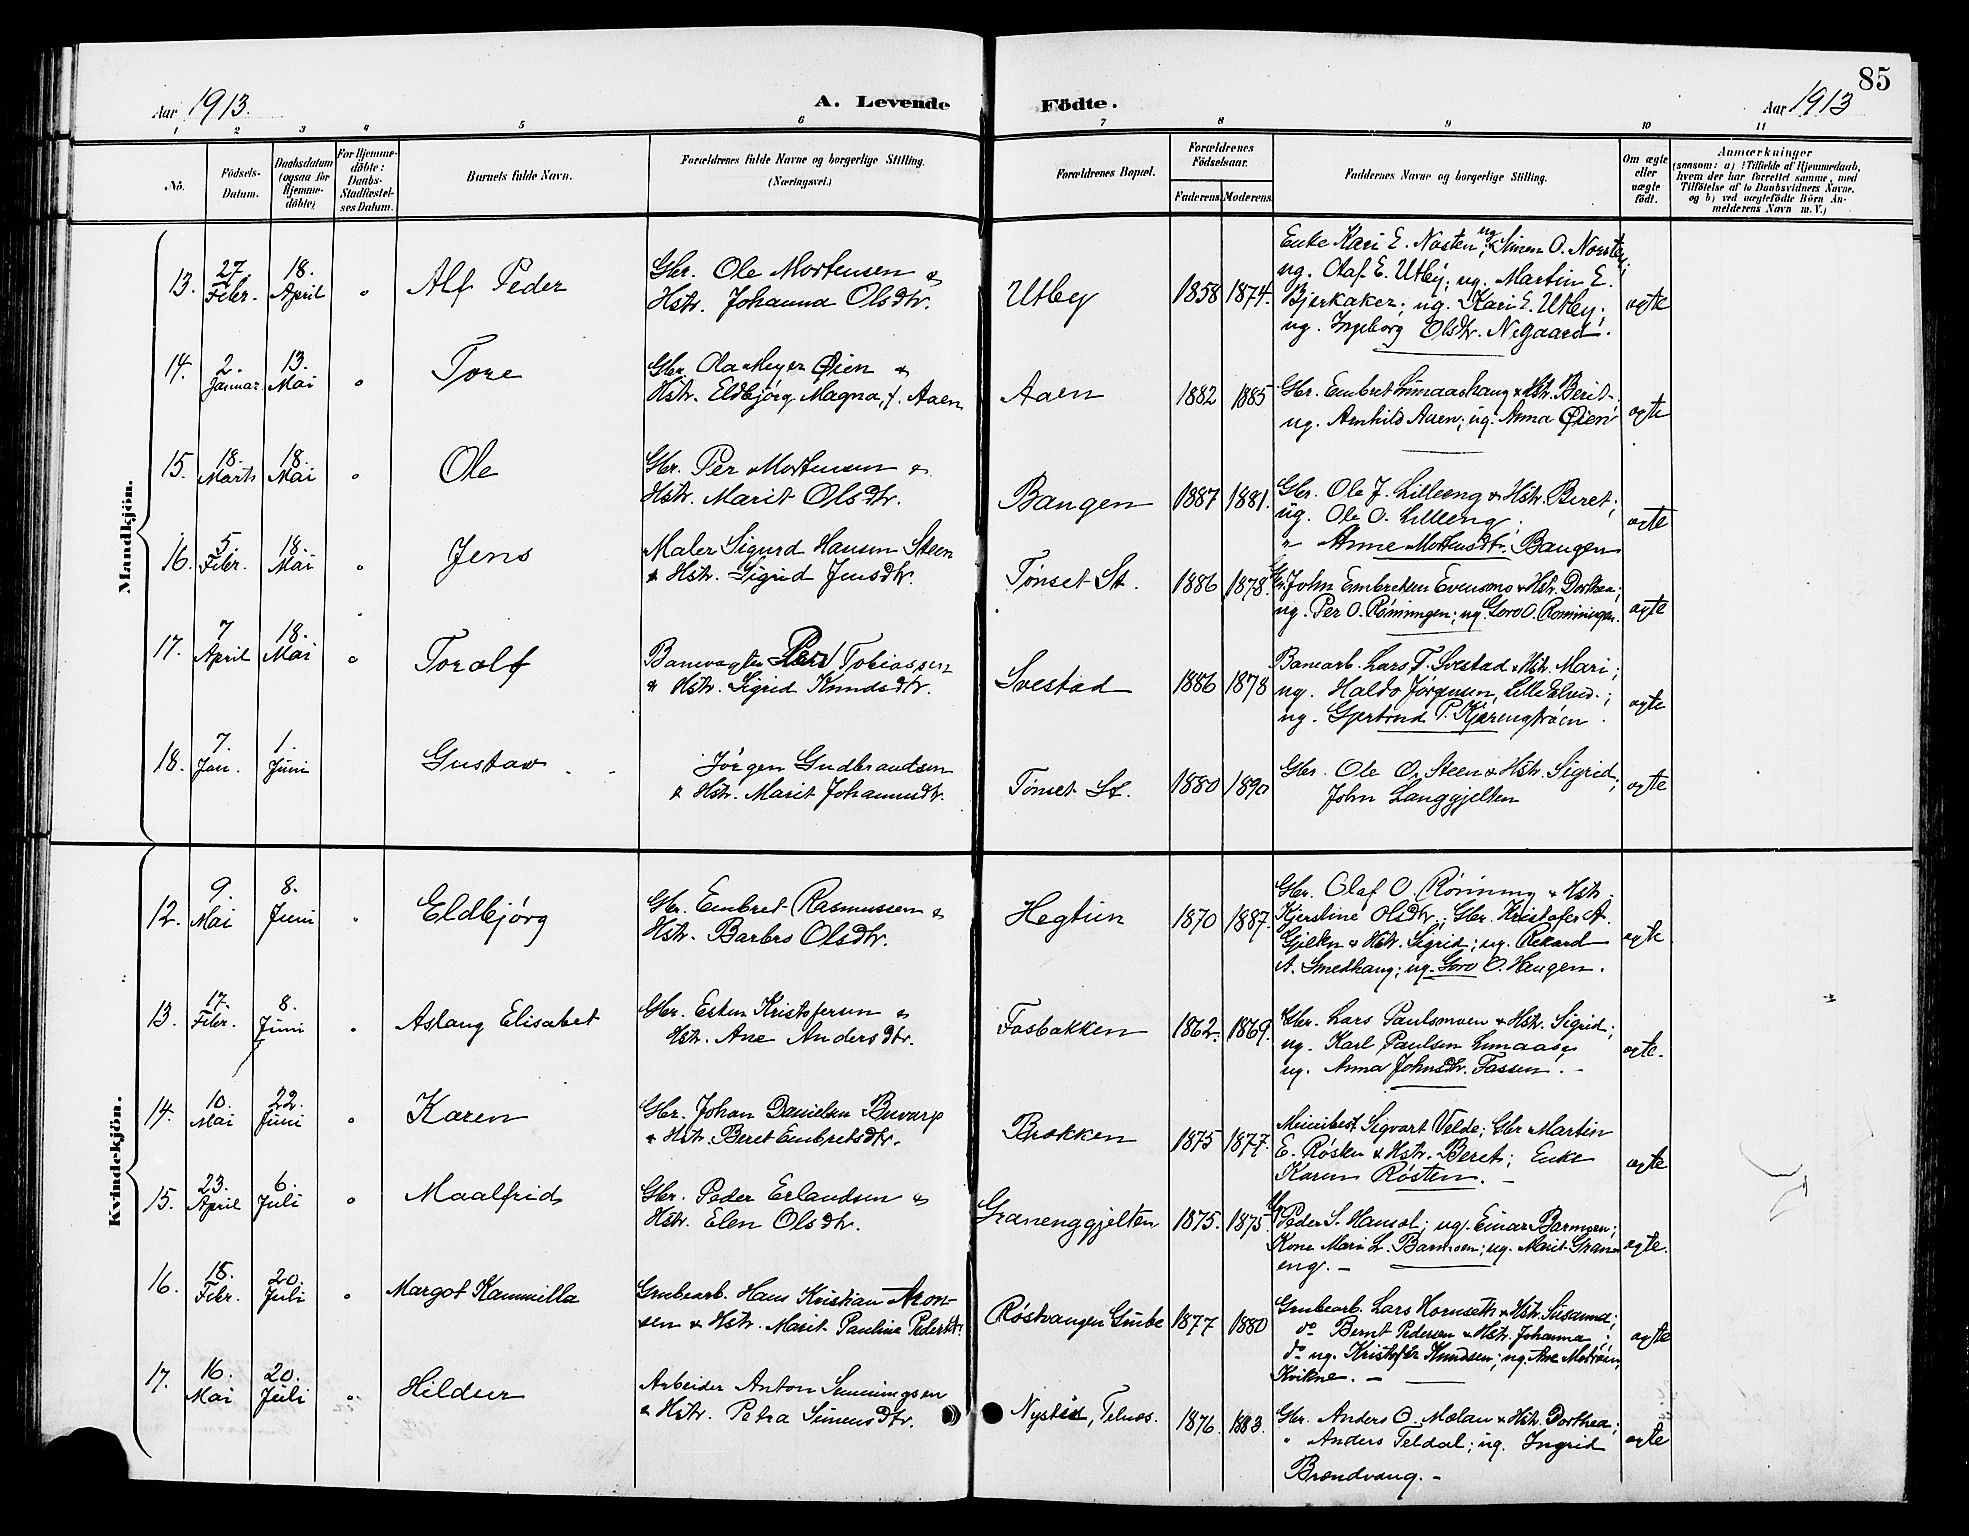 85
Aar 1913.
A. Levende Födte.
Aar 1913
1 2 3 4 5 6 7 8 9 10 11
No.
Födsels-Datum.
Daabsdatum (ogsaa for Hjemmedöbte)
For Hjemmedöbte: Daabs-Stadfæstelses Datum.
Barnets fulde Navn.
Forældrenes fulde Navne og borgerlige Stilling.
(Næringsvei.)
Forældrenes Bopæl.
Forældrenes Födselsaar.
Faderens Moderens
Faddernes Navne og borgerlige Stilling.
Om ægte eller uægte födt.
Anmærkninger
(saasom: a) i Tilfælde af Hjemmedaab,
hvem der har forrettet samme, med
Tilföielse af to Daabsvidners Navne.
og b) ved uægtefödte Börn An-
melderens Navn m. V.)
Mandkjön.
13. 27 Febr. 18. April " Alf Peder
Gbr. Ole Mortensen &
Hstr. Johanna Olsdtr.
Utby 1858 1874.
Enke Kari E. Nosten, ug. Simen O. Norsten;
ug. Olaf E. Utby; ug. Martin E.
Bjerkaker; ug. Kari E. Utby;
ug. Ingeborg Olsdtr. Nygaard.
ægte
14. 2. Januar 13. Mai " Tore
Gbr. Ola Meyer Øien &
Hstr. Eldbjørg Magna, f. Aaen
Aaen 1882 1885
Gbr. Embret Lunaashaug & Hstr. Berit
ug. Arnhild Aaen; ug. Anna Øien
ægte
15. 18. Marts 18. Mai " Ole
Gbr. Per Mortensen &
Hstr. Marit Olsdtr.
Bangen 1887 1881.
Gbr. Ole J. Lilleeng & Hstr. Beret;
ug. Ole O. Lilleeng;
" Anne Mortensdtr. Bangen
ægte
16. 5 Febr. 18. Mai " Jens
Maler Sigurd Hansen Steen
& Hstr. Sigrid Jensdtr.
Tønset St. 1886 1878.
Gbr. John Embretsen Evensmo & Hstr. Dorthea;
ug. Per O. Rønningen; ug. Goro O. Rønningen.
ægte
17. 7 April 18. Mai " Toralf
Banevogter Peder Tobiassen
& Hstr. Sigrid Knudsdtr.
Svestad 1886 1878
Banearb. Lars T. Svestad & Hstr. Mari;
ug. Haldo Jørgensen, Lille Elved.;
ug. Gjertrud P. Kjærengtrøen.
ægte
18. 7. Jan. 1. Juni Gustav
Jørgen Gudbrandsen
& Hstr. Marit Johannesdtr.
Tønset St. 1880 1890
Gbr. Ole O. Steen & Hstr. Sigrid;
John Langgjelten
ægte
Kvindekjön.
12. 9. Mai 8. Juni " Eldbjørg
Gbr. Embret Rasmussen &
Hstr. Barbro Olsdtr.
Hegtun 1870 1887.
Gbr. Olaf O. Rønning & Hstr.
Kjerstine Olsdtr.; Gbr. Kristofer A.
Gjelten & Hstr. Sigrid; ug. Rikard
A. Smedhaug; ug. Goro O. Haugen.
ægte
13. 17. Febr. 8. Juni " Aslaug Elisabet
Gbr. Esten Kristofersen &
Hstr. Ane Andersdtr.
Fosbakken 1862. 1869.
Gbr. Lars Paulsmoen & Hstr. Sigrid;
ug. Karl Paulsen Lunaas;
ug. Anna Johnsdtr. Fossen.
ægte.
14. 10. Mai 22. Juni " Karen
Gbr. Johan Danielsen Buvarp
& Hstr. Beret Embretsdtr.
Brokken 1875 1877.
Sigvart Velde; Gbr Martin
E. Røsten & Hstr. Beret; Enke
Karen Røsten.
ægte
15. 23. April 6. Juli " Maalfrid
Gbr. Peder Erlandsen &
Hstr. Elen Olsdtr.
Granenggjelten 1875. 1875.
Gbr Peder S. Hansol; ug. Einar Barmoen;
Kone Mari L. Barmoen; ug. Marit Gran-
eng.
ægte.
16. 18. Febr. 20. Juli " Margot Kammilla
Grubearb. Hans Kristian Aron-
sen & Hstr. Marit Pauline Pedersdtr.
Røstvangen Grube 1877 1880
Grubearb. Lars Hornseth & Hstr. Susanna;
do Bernt Pedersen & Hstr. Johanna;
do ug. Kristofer Knudsen; ug. Ane
Kvikne.
ægte
17. 16 Mai 20. Juli " Hildur
Arbeider Anton Simmingsen
& Hstr. Petra Simensdtr.
Nystad, Telnes. 1876 1883.
Gbr. Anders O. Molau & Hstr. Dorthea;
" Anders Teldal; ug. Ingrid
Brendvang.
ægte